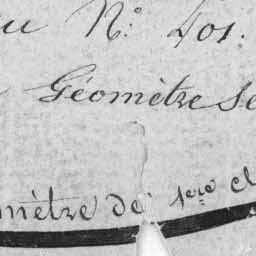 au N.º 201.
Géomètre Se
mètre de 1ere cl